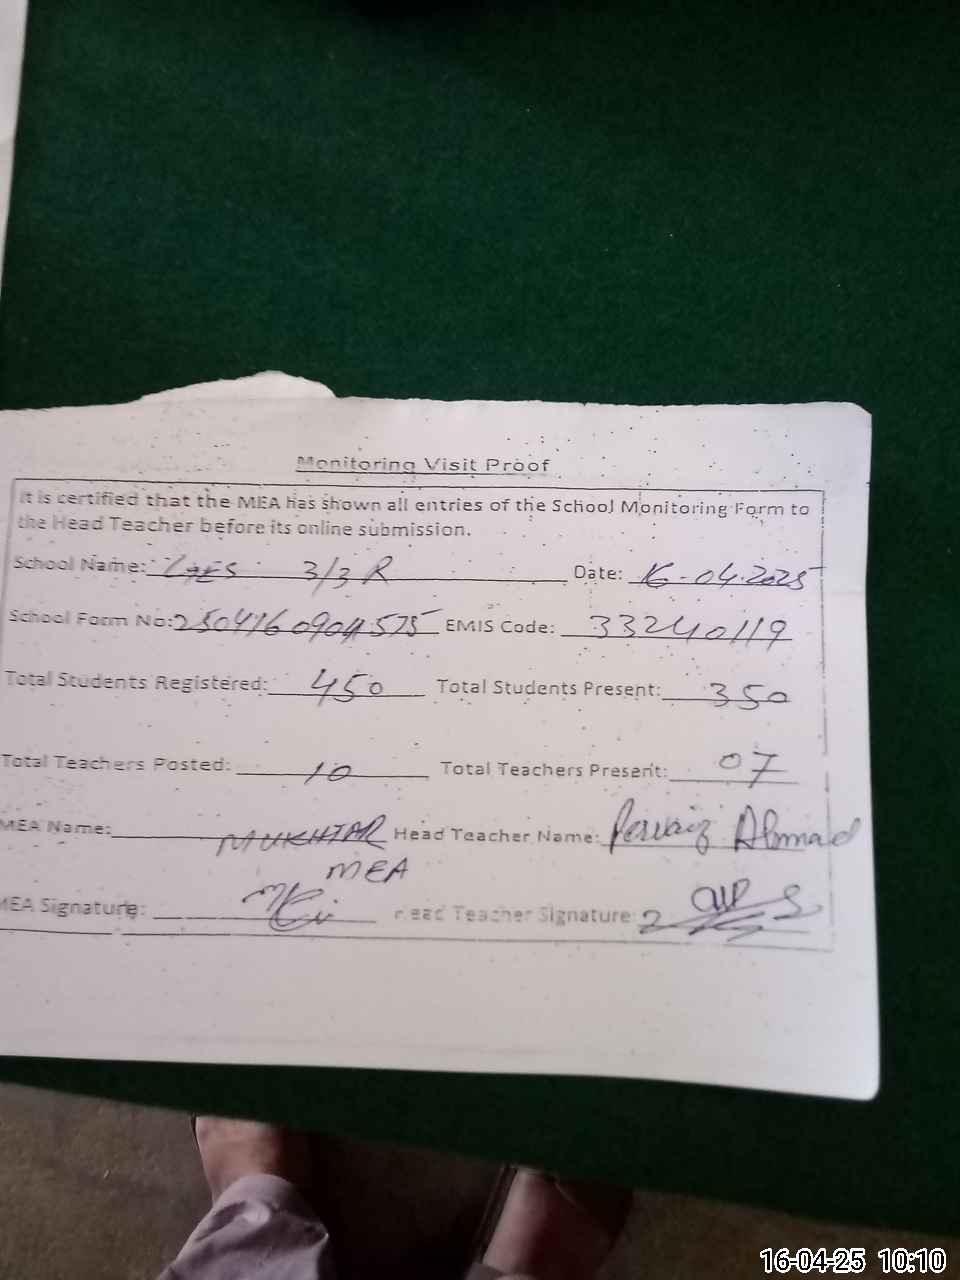 Monitoring Visit Proof
It is certified that the MEA has shown all entries of the School Monitoring Form to
the Head Teacher before its online submission.
School Name: GES 3/3R Date: 16-04-2025
School Form No: EMIS Code: 33240119
Total Students Registered: 450 Total Students Present: 350
Total Teachers Posted: 10 Total Teachers Present: 07
MEA Name: MUKHTAR Head Teacher Name: Pervaiz Ahmad
MEA
MEA Signature: Head Teacher Signature:
16-04-25 10:10